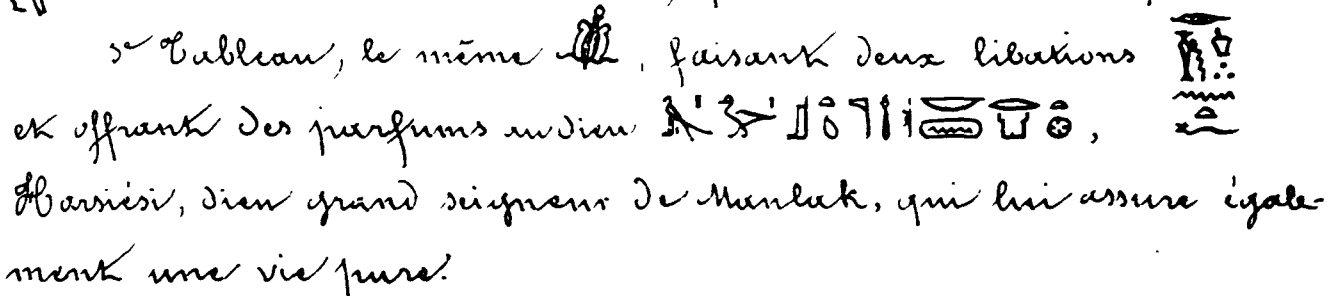 3e Tableau, le même, faisant deux libations
et offrant des parfums au dieu,
Harsiési, dieu grand seigneur de Manlak, qui lui assure égale-
ment une vie pure.